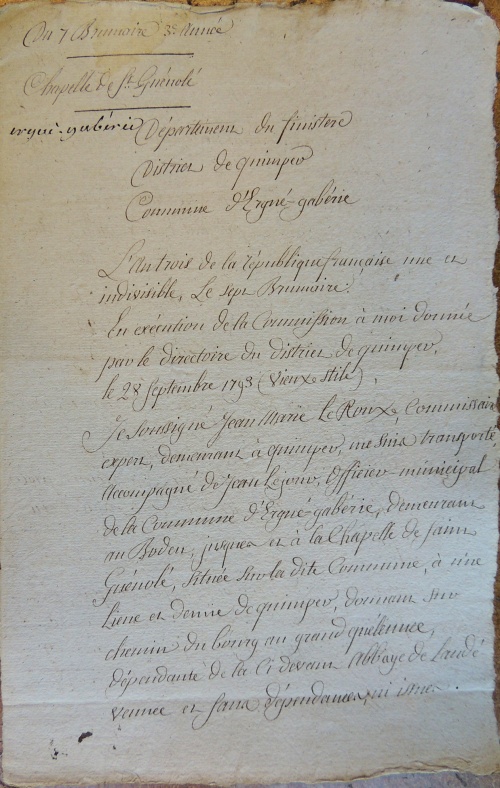 Du 7 Brumaire 3e Année
Chapelle de St Guénolé
ergué-gabéric
Département du finistere
District de quimper
Commune d'Ergué-gabéric
L'An trois de la république française une et
indivisible, Le sept Brumaire.
En exécution de la Commission à moi donnée
par le directoire du district de quimper,
le 28 Septembre 1793 (vieux stile),
Je soussigné Jean Marie Le Roux, Commissaire
expert, demeurant à quimper, me suis transporté,
accompagné de Jean Lejour, officier municipal
de la Commune d'Ergué-gabéric, demeurant
au Boden, jusques et à la Chapelle de saint
Guénolé, située sur la dite Commune, à une
Lieue et demie de quimper, donnant sur
chemin du bourg au grand quélennec,
dépendante de la ci devant Abbaye de Landé
vennec et sans dépendances, ni issues.